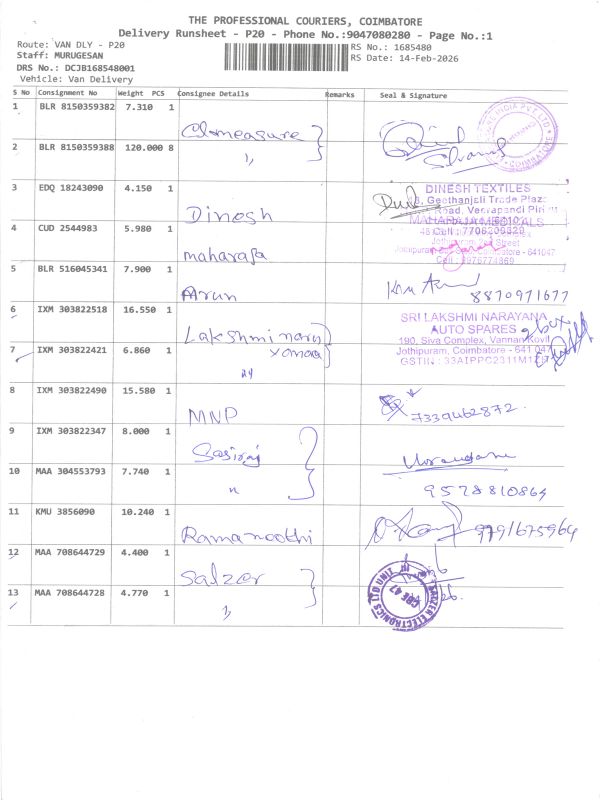 THE PROFESSIONAL COURIERS, COIMBATORE
Delivery Runsheet - P20 - Phone No.:9047080280 - Page No.:1
Route: VAN DLY - P20
Staff: MURUGESAN
DRS No.: DCJB168548001
Vehicle: Van Delivery
RS No.: 1685480
RS Date: 14-Feb-2026
S No Consignment No Weight PCS Consignee Details Remarks Seal & Signature
1 BLR 8150359382 7.310 1
2 BLR 8150359388 120.000 8
3 EDQ 18243090 4.150 1 Dinesh
DINESH TEXTILES
Geethanjali Trade Plaz
4 CUD 2544983 5.980 1 maharaja
MAHARAJA MEDICALS
Cell : 7708209829
Street
Jothipuram, Coimbatore - 641047
Cell : 8976774869
5 BLR 516045341 7.900 1 Arun
8870971677
6 IXM 303822518 16.550 1 Lakshmi
SRI LAKSHMI NARAYANA
AUTO SPARES
190, Siva Complex, Vannan Kovil
7 IXM 303822421 6.860 1
Jothipuram, Coimbatore - 641 047
GSTIN : 33AIPPC2311M1Z
8 IXM 303822490 15.580 1 MNP
7339462872
9 IXM 303822347 8.000 1 Sasiraj
10 MAA 304553793 7.740 1 "
9578810864
11 KMU 3856090 10.240 1 Ramamoothi
9791675964
12 MAA 708644729 4.400 1 Salzer
13 MAA 708644728 4.770 1 "
SALZER ELECTRONICS LTD UNIT
CBE 47